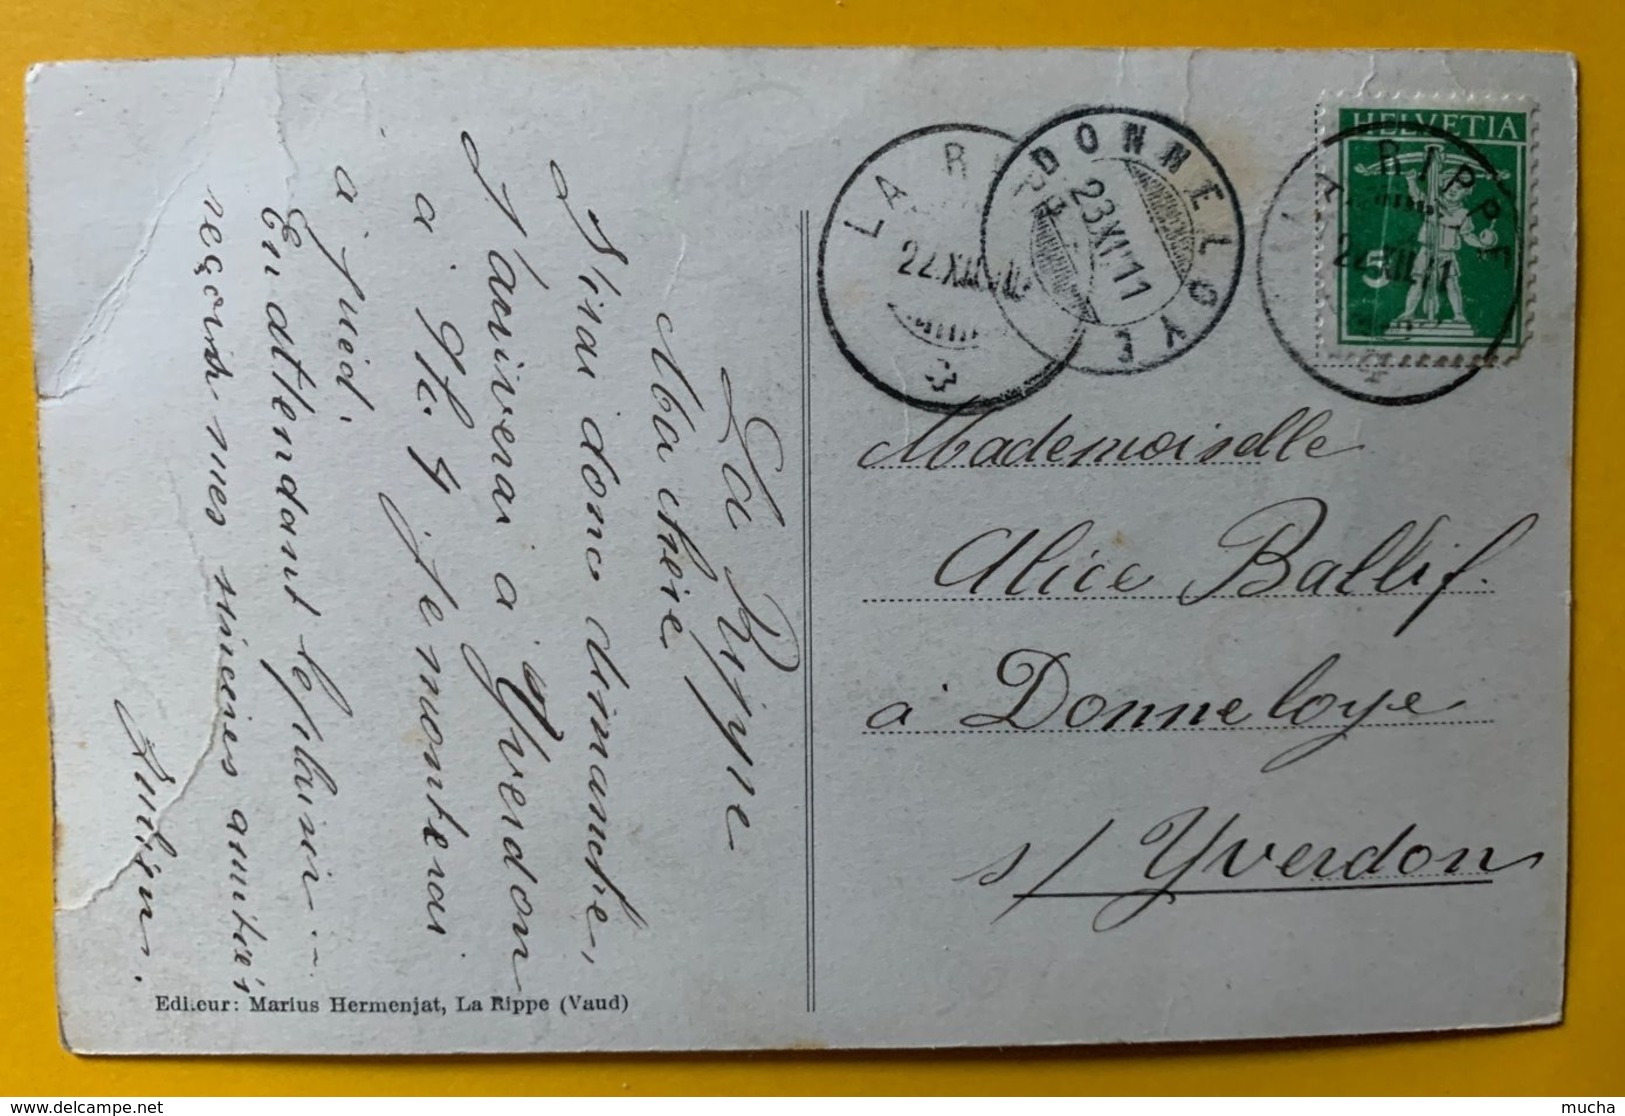 La Rippe
Ma chère
J'irai donc dimanche,
J'arriverai à Yverdon
à 9h. 4 je monterai
à pied.
En attendant le plaisir
reçois mes sincères amitiés
Editeur: Marius Hermenjat, La Rippe (Vaud)
LA RIPPE
22.XII.11
DONNELOYE
23.XII.11
HELVETIA
5
LA RIPPE
22.XII.11
Mademoiselle
Alice Ballif.
à Donneloye
s/ Yverdon
mucha